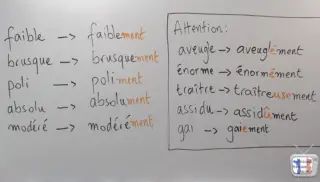 faible → faiblement
brusque → brusquement
poli → poliment
absolu → absolument
modéré → modérément
Attention:
aveugle → aveuglément
énorme → énormément
traître → traîtreusement
assidu → assidûment
gai → gaiement